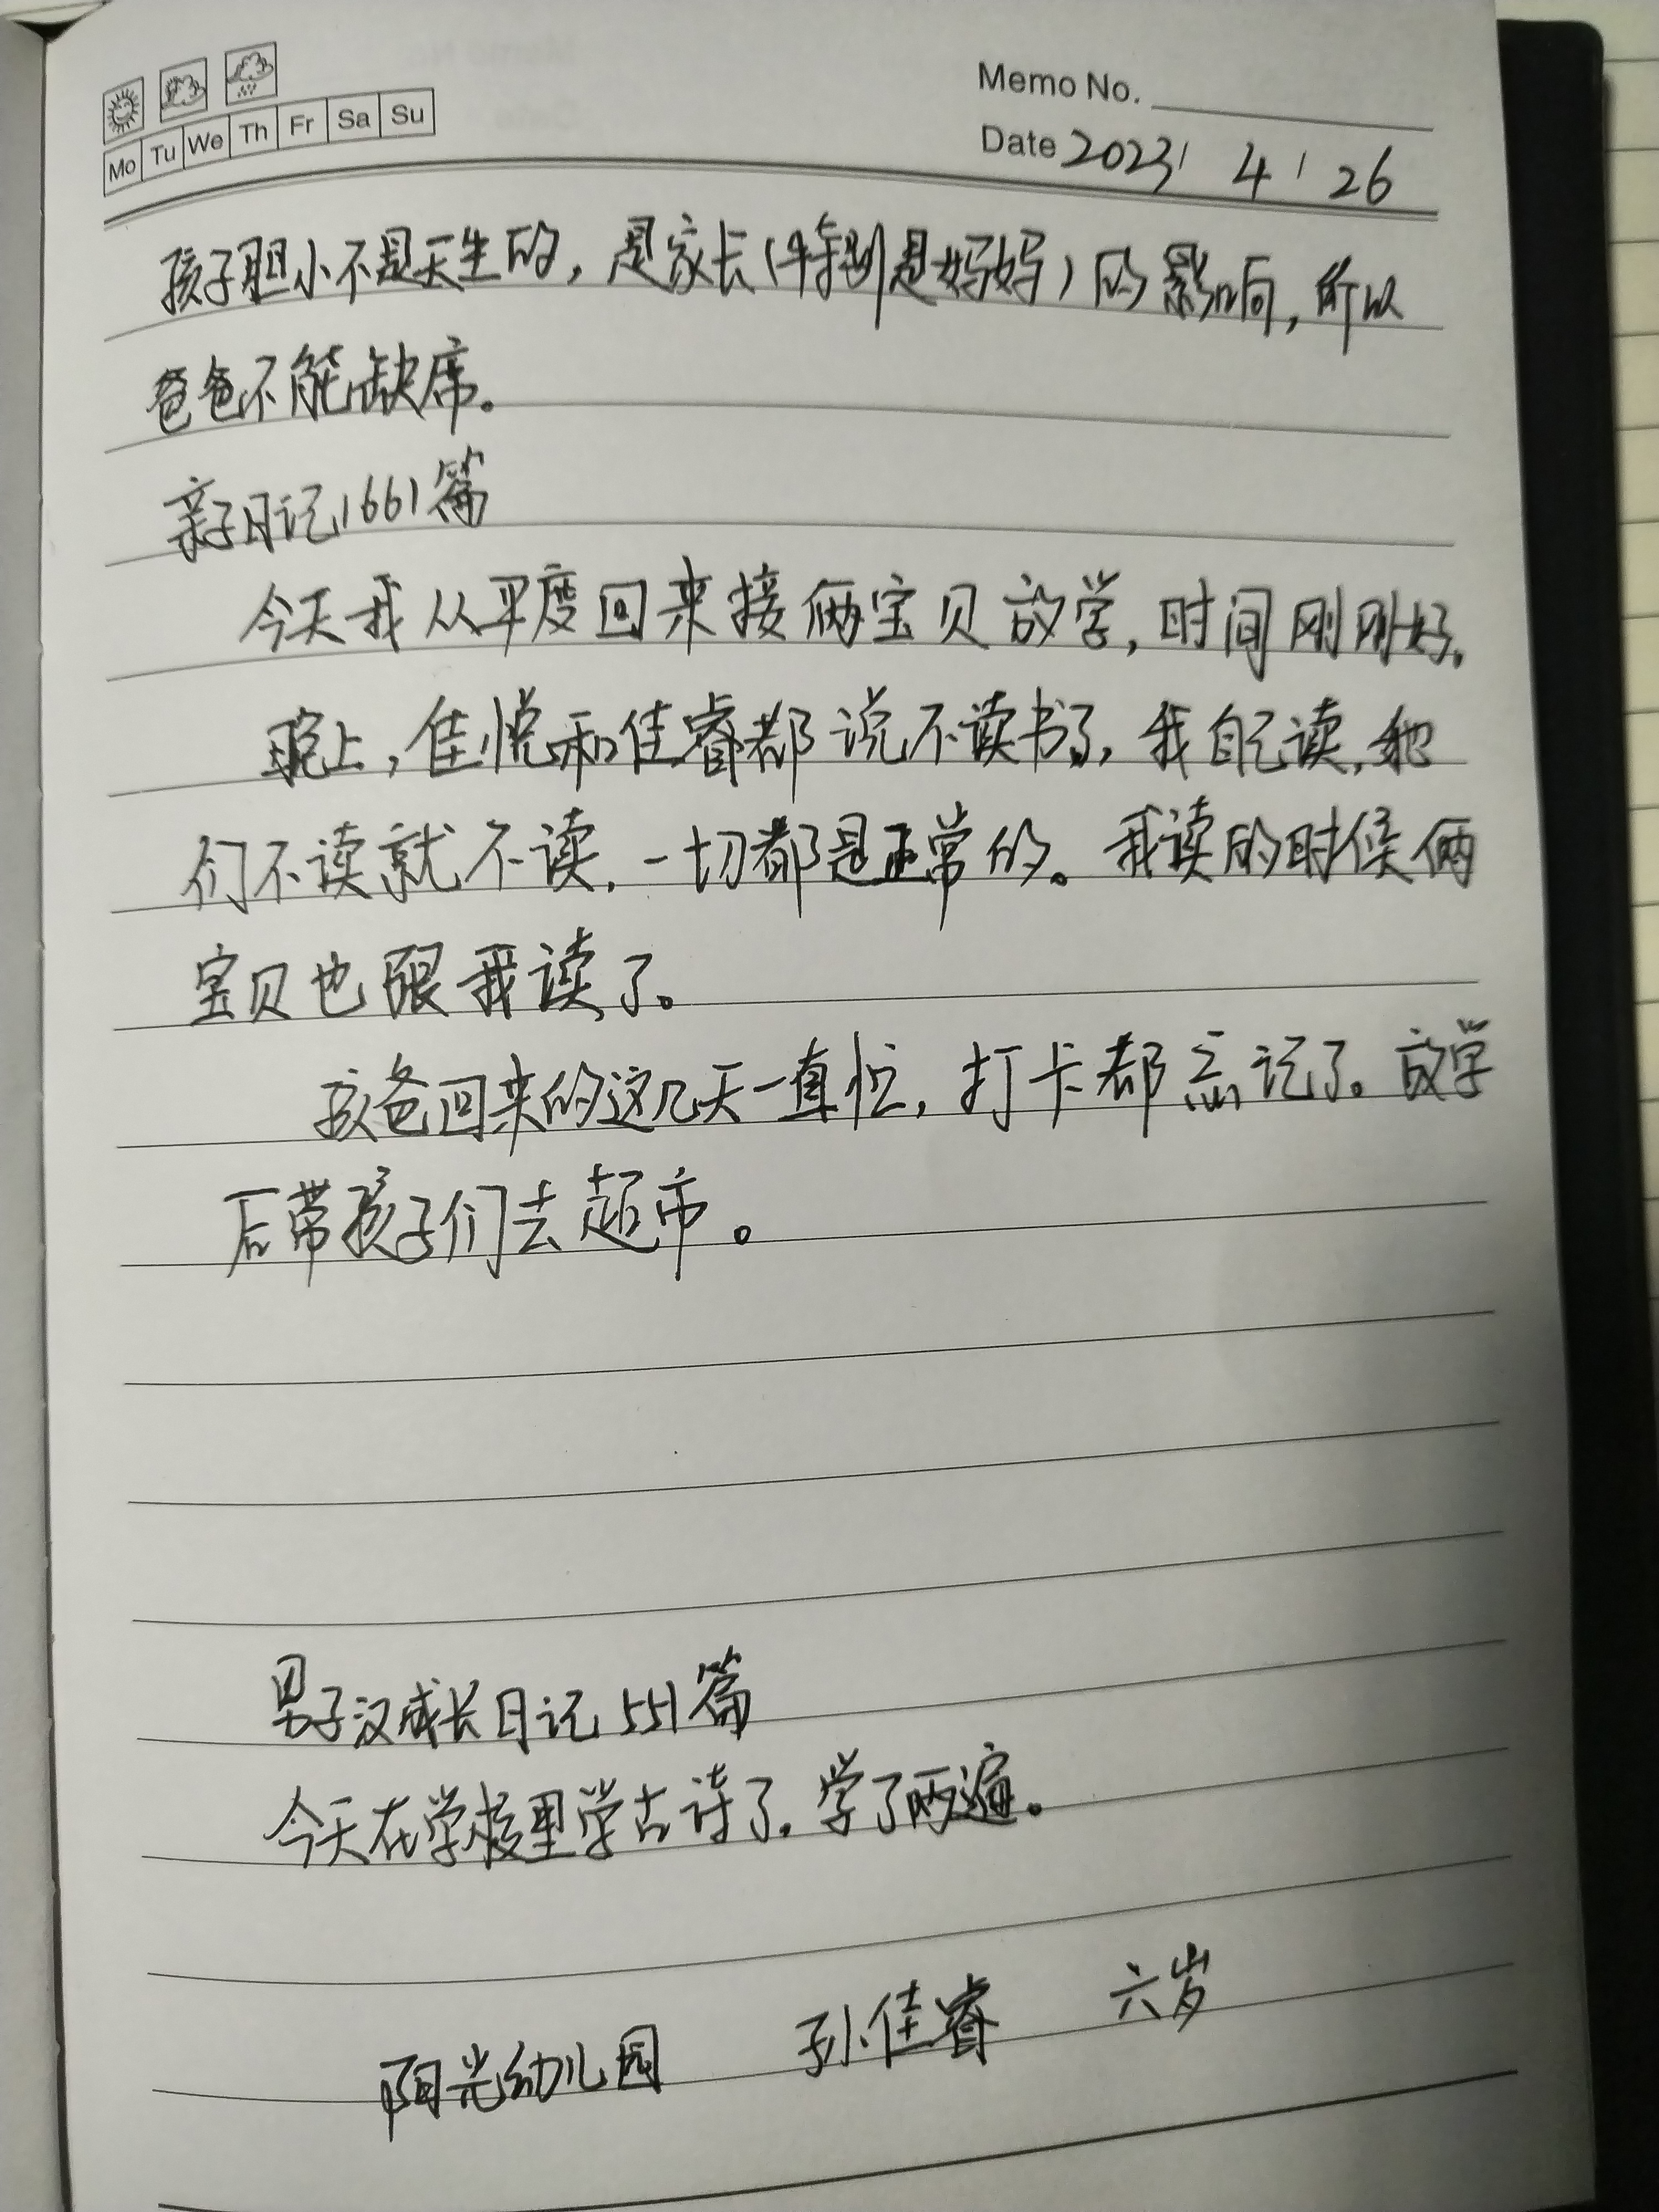 Memo No.
Mo Tu We Th Fr Sa Su
Date 2023 / 4 / 26
孩子胆小不是天生的，是家长（特别是妈妈）的影响，所以
爸爸不能缺席。
亲子日记1661篇
今天我从平度回来接俩宝贝放学，时间刚刚好。
晚上，佳悦和佳睿都说不读书了，我自己读，她
们不读就不读，一切都是正常的。我读的时候俩
宝贝也跟我读了。
孩爸回来的这几天一直忙，打卡都忘记了。放学
后带孩子们去超市。
男子汉成长日记551篇
今天在学校里学古诗了，学了两遍。
阳光幼儿园 孙佳睿 六岁